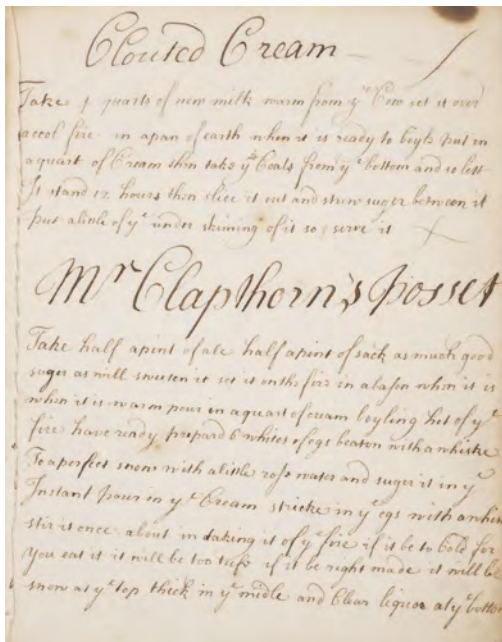 Clouted Cream
Take 4 quarts of new milk warm from yᵉ Cow set it over
a cool fire in a pan of earth when it is ready to boyle put in
a quart of Cream then take yᵉ Coals from yᵉ bottom and so lett
It stand 12 hours then slice it out and strew suger between it
put a litle of yᵉ under skiming of it so serve it
Mʳ Clapthorn's Posset
Take half a pint of ale half a pint of sack as much good
suger as will sweeten it set it on the fire in a bason when it is
when it is warm pour in a quart of cream boyling hot of yᵉ
fire have ready prepard 6 whites of egs beaten with a whiske
To a perfect snow with a litle rose water and suger it in yᵉ
Instant pour in yᵉ Cream stricke in yᵉ egs with a
stir it once about in taking it of yᵉ fire if it be to Cold for
you eat it it will be too if it be right made it will be
snow at yᵉ top thick in yᵉ midle and Clear liquor at yᵉ